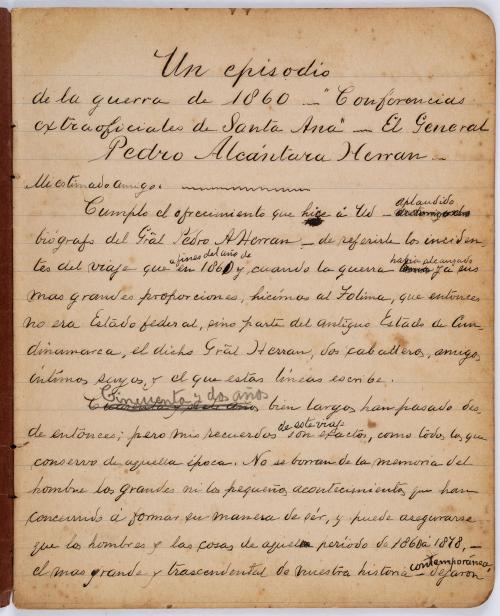 Un episodio
de la guerra de 1860 — "Conferencias
extraoficiales de Santa Ana" — El General
Pedro Alcántara Herran —
Mi estimado amigo:
Cumplo el ofrecimiento que hice á Ud — aplaudido
biógrafo del Grāl Pedro A Herran — de referirle los inciden-
tes del viaje que a fines del año de en 1860 y, cuando la guerra había alcanzado ya sus
mas grandes proporciones, hicimos al Tolima, que entonces
no era Estado federal, sino parte del antiguo Estado de Cun-
dinamarca, el dicho Grāl Herran, dos caballeros, amigos
íntimos suyos, y el que estas líneas escribe.
Cincuenta y dos años bien largos han pasado des-
de entonces; pero mis recuerdos de este viaje son exactos, como todos los que
conservo de aquella época. No se borran de la memoria del
hombre los grandes ni los pequeños acontecimientos que han
concurrido á formar su manera de ser, y puede asegurarse
que los hombres y las cosas de aquel periodo de 1860 á 1878, —
el mas grande y trascendental de nuestra historia contemporánea — dejaron